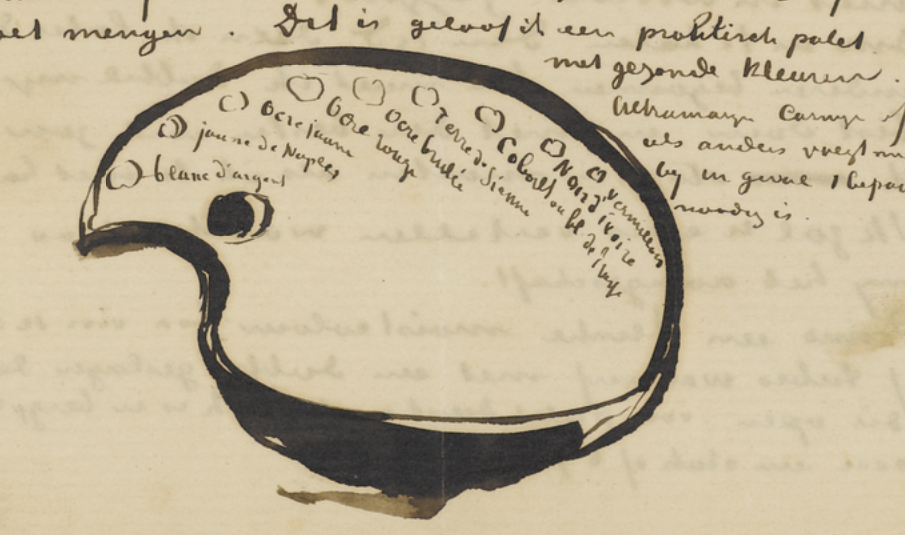 met mengen. Det is geloof ik een praktisch palet
met gezonde kleuren.
Ultramarijn Carmijn of
als anders voegt men
by in geval 1 bepaald
noodig is.
blanc d'argent
jaune de Naples
ocre jaune
Ocre rouge
Ocre brulée
Terre de Sienne
Cobalt ou bl. de Prusse
Noir d'ivoire
vermillon